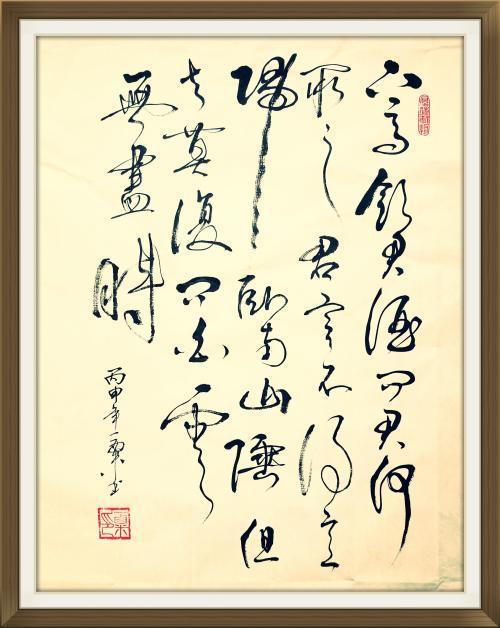 下馬飲君酒問君何
所之君言不得意
歸臥南山陲但
去莫復問白雲
無盡時
丙申年